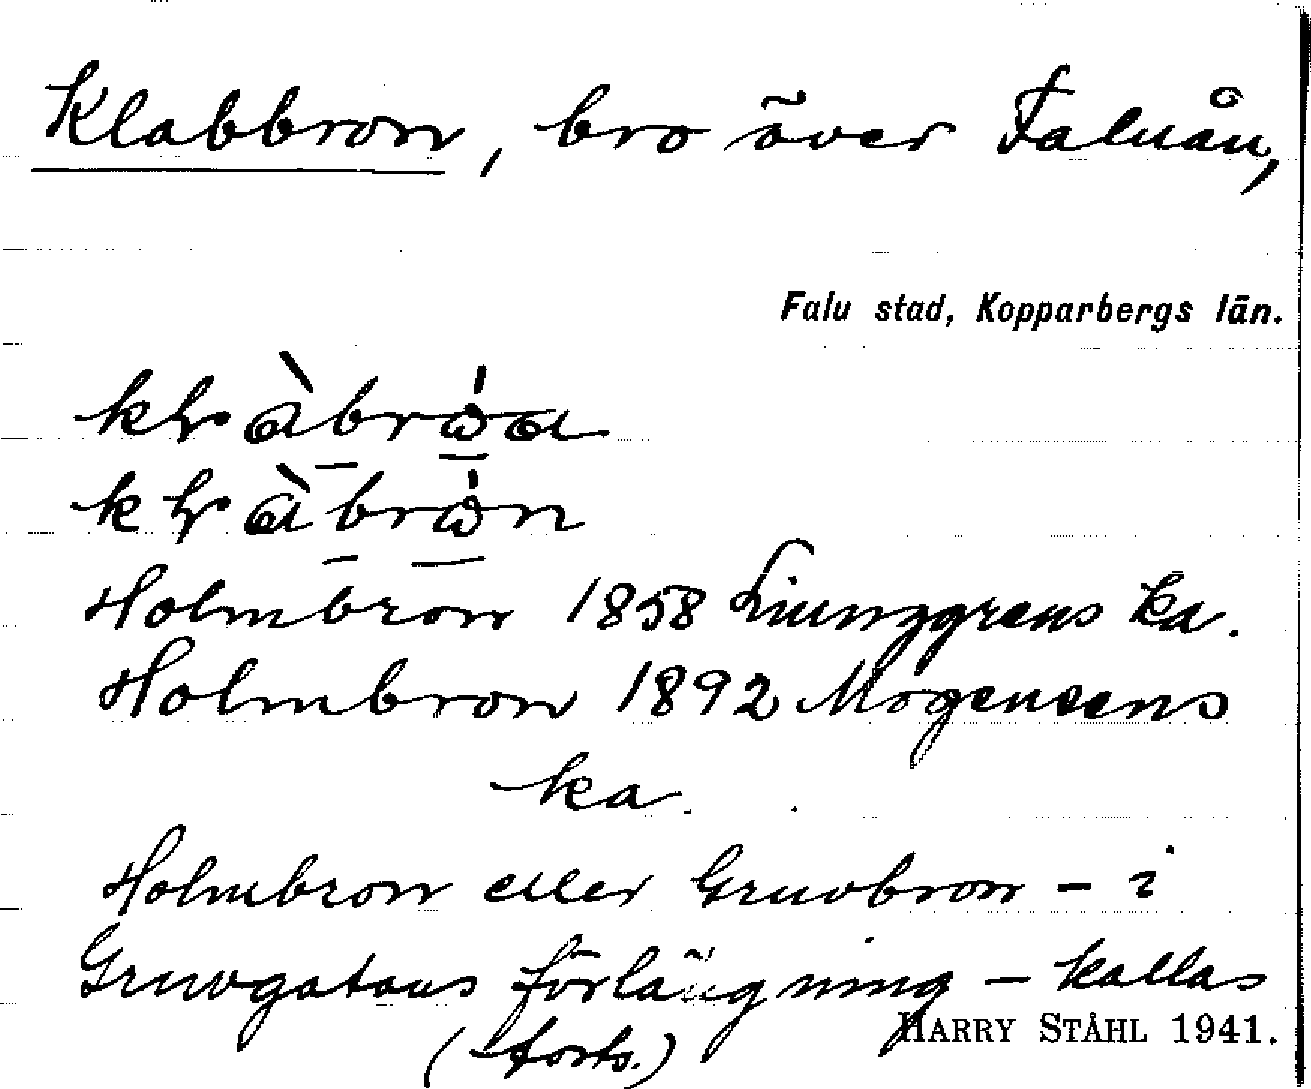 Klabbron, bro över Faluån,
Falu stad, Kopparbergs län.
Holmbron 1858 Ljunggrens ka.
Holmbron 1892 Mogensens
ka.
Holmbron eller Gruvbron – i
Gruvgatans förlängning – kallas
(forts.) HARRY STÅHL 1941.